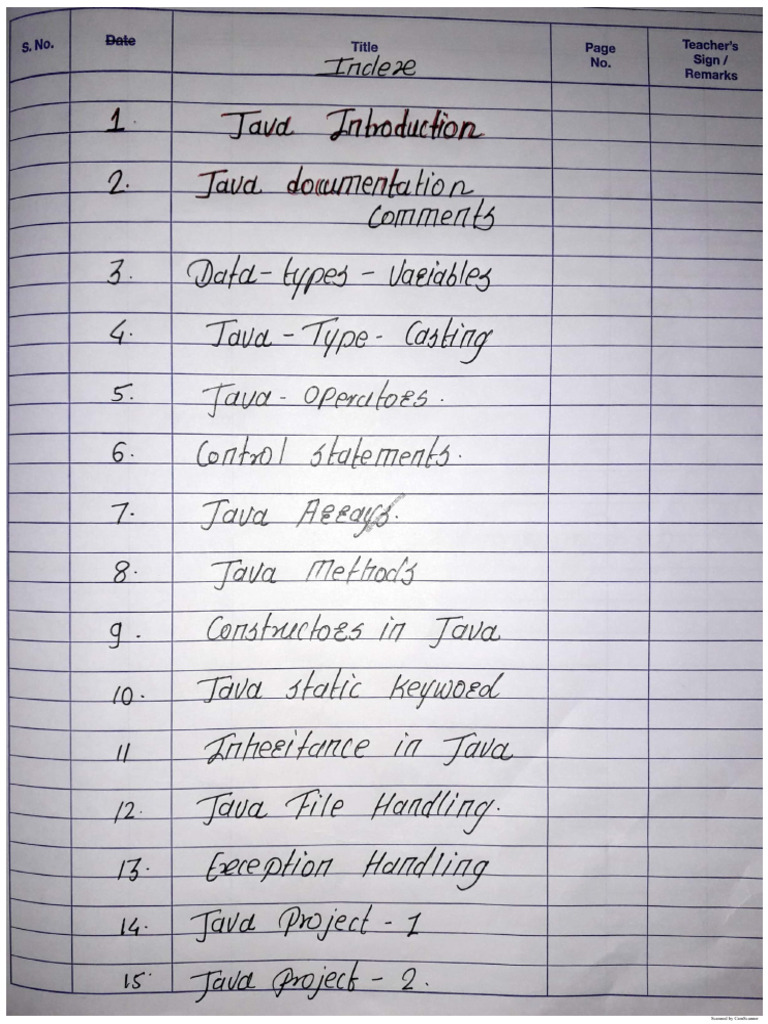 S. No. Date Title Page No. Teacher's Sign / Remarks
Index
1. Java Introduction
2. Java documentation
comments
3. Data-types-Variables
4. Java-Type-Casting
5. Java-Operators.
6. Control statements.
7. Java Arrays.
8. Java Methods
9. Constructors in Java
10. Java static keyword
11 Inheritance in Java
12. Java File Handling.
13. Exception Handling
14. Java Project-1
15. Java Project-2.
Scanned by CamScanner